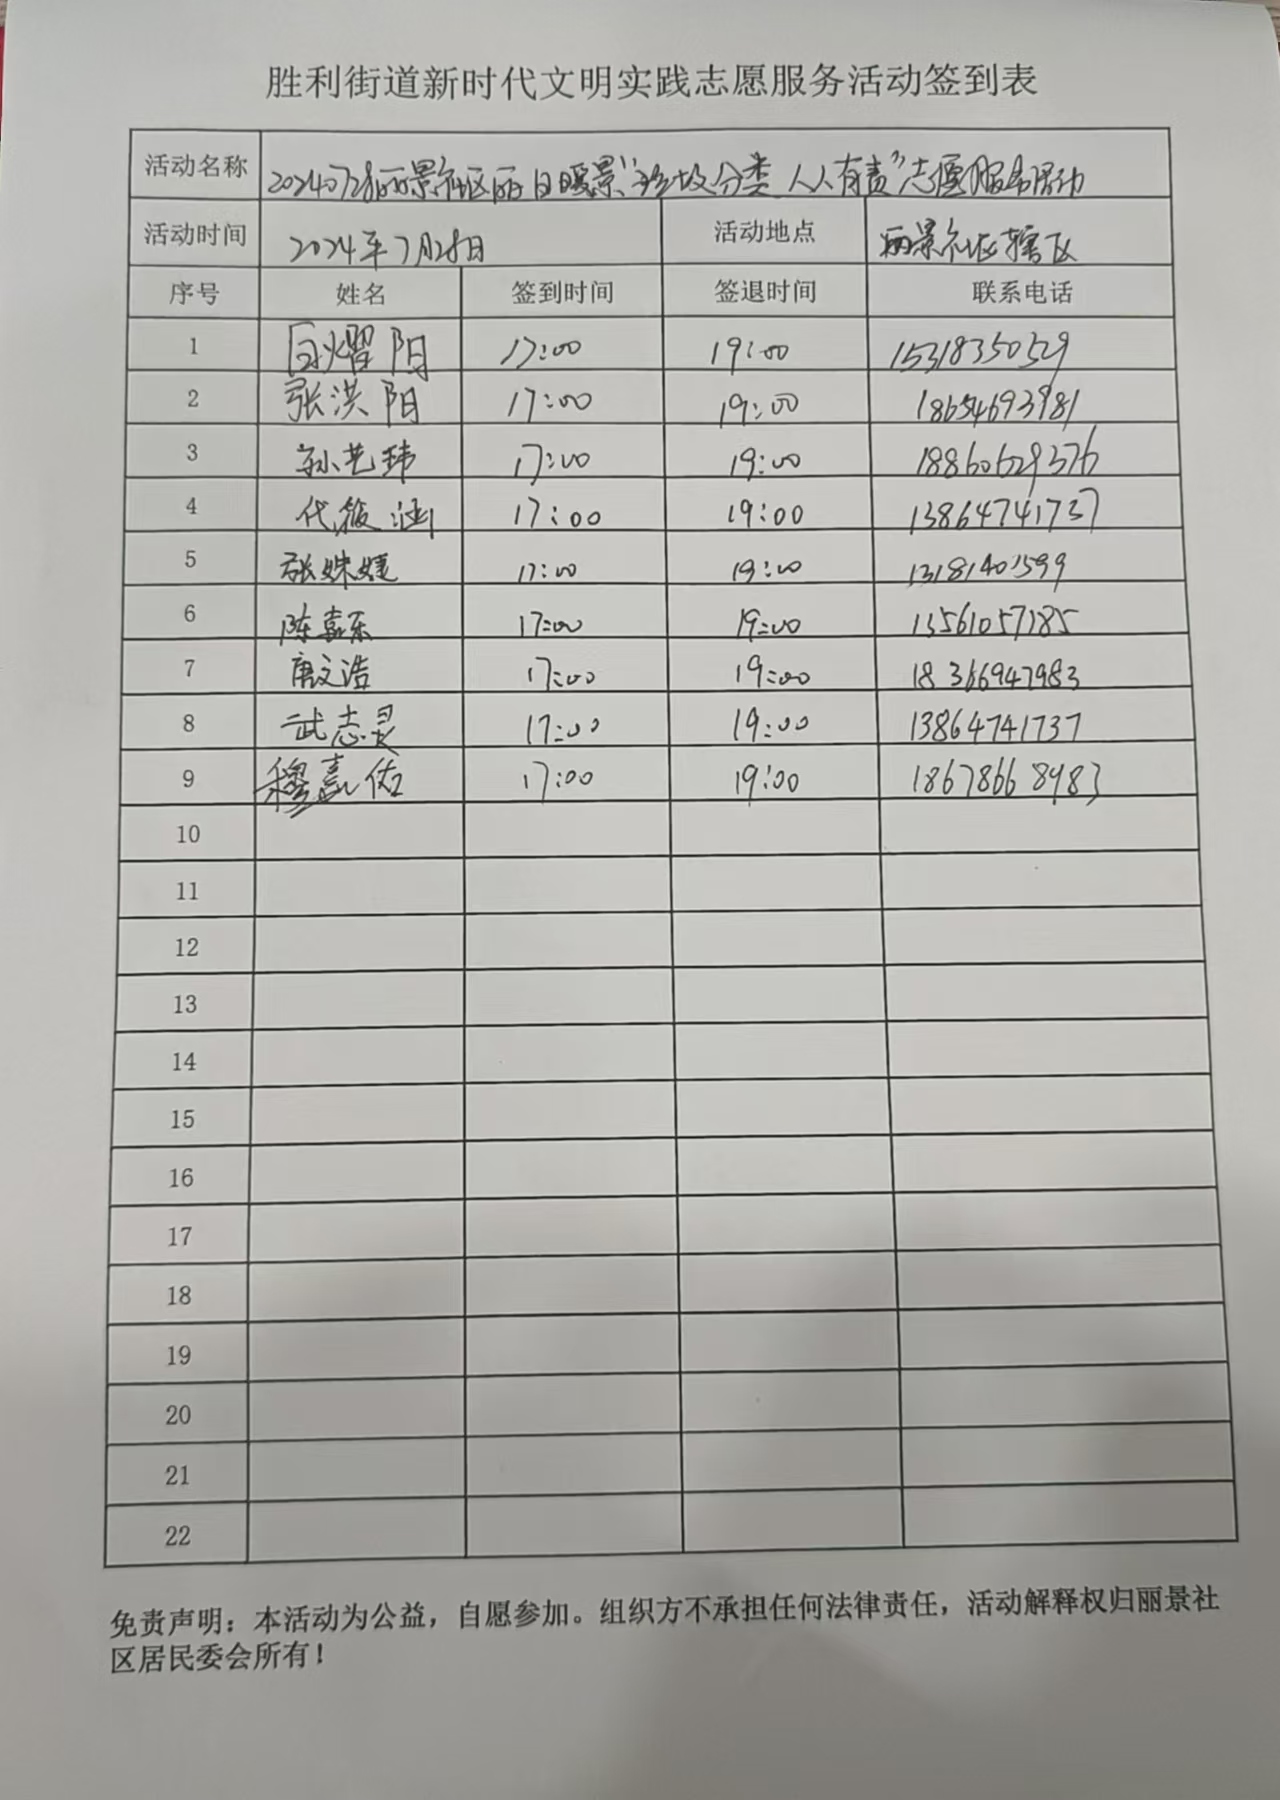 胜利街道新时代文明实践志愿服务活动签到表
活动名称 20240728丽景社区丽日暖景“垃圾分类 人人有责”志愿服务活动
活动时间 2024年7月28日 活动地点 丽景社区辖区
序号 姓名 签到时间 签退时间 联系电话
1 白耀阳 17:00 19:00 15318350529
2 张洪阳 17:00 19:00 18654693981
3 孙艺玮 17:00 19:00 18860629376
4 代筱涵 17:00 19:00 13864741737
5 张姝婕 17:00 19:00 13181401599
6 陈嘉乐 17:00 19:00 13561057185
7 唐文浩 17:00 19:00 18366947983
8 武志灵 17:00 19:00 13864741737
9 穆嘉佑 17:00 19:00 18678668983
10
11
12
13
14
15
16
17
18
19
20
21
22
免责声明：本活动为公益，自愿参加。组织方不承担任何法律责任，活动解释权归丽景社
区居民委会所有！